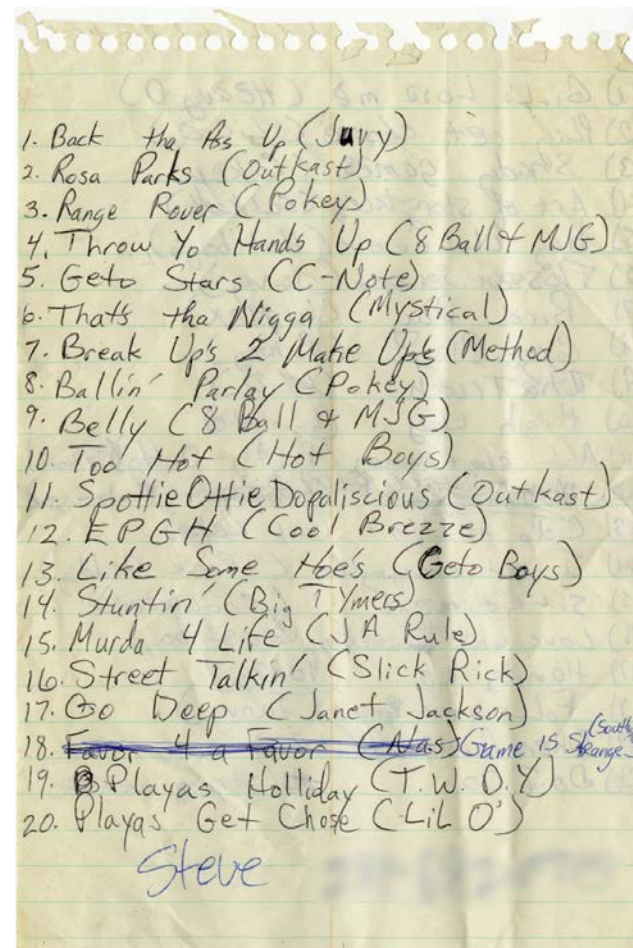 1. Back tha Ass Up (Juvy)
2. Rosa Parks (Outkast)
3. Range Rover (Pokey)
4. Throw Yo Hands Up (8 Ball & MJG)
5. Geto Stars (C-Note)
6. That's tha Nigga (Mystical)
7. Break Up's 2 Make Up's (Method)
8. Ballin' Parlay (Pokey)
9. Belly (8 Ball & MJG)
10. Too Hot (Hot Boys)
11. SpottieOttieDopaliscious (Outkast)
12. EPGH (Cool Brezze)
13. Like Some Hoe's (Geto Boys)
14. Stuntin' (Big TYmers)
15. Murda 4 Life (JA Rule)
16. Street Talkin' (Slick Rick)
17. Go Deep (Janet Jackson)
18. Favor 4 a Favor (Nas) Game is Strange
19. Playas Holliday (T.W.D.Y)
20. Playas Get Chose (LiL O')
Steve